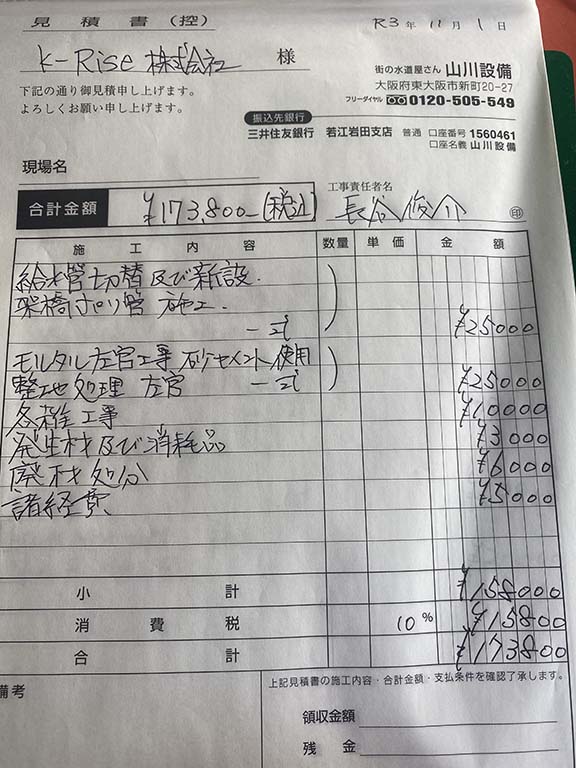 見積書(控)
R3年11月1日
K-Rise 株式会社 様
下記の通り御見積申し上げます。
よろしくお願い申し上げます。
街の水道屋さん 山川設備
大阪府東大阪市新町20-27
フリーダイヤル 0120-505-549
振込先銀行
三井住友銀行 若江岩田支店 普通 口座番号 1560461
口座名義 山川設備
現場名
工事責任者名
合計金額 ¥173,800-(税込)
長谷 俊介 印
施工内容 数量 単価 金額
給水管切替及び新設.
架橋ポリ管 施工.
一式 ¥25000
モルタル左官工事 砂セメント使用
整地処理 左官 一式 ¥25000
各雑工事 ¥10000
発生材及び消耗品 ¥3000
廃材処分 ¥6000
諸経費 ¥5000
小計 ¥158000
消費税 10% ¥15800
合計 ¥173800
備考
上記見積書の施工内容・合計金額・支払条件を確認了承します。
領収金額
残金